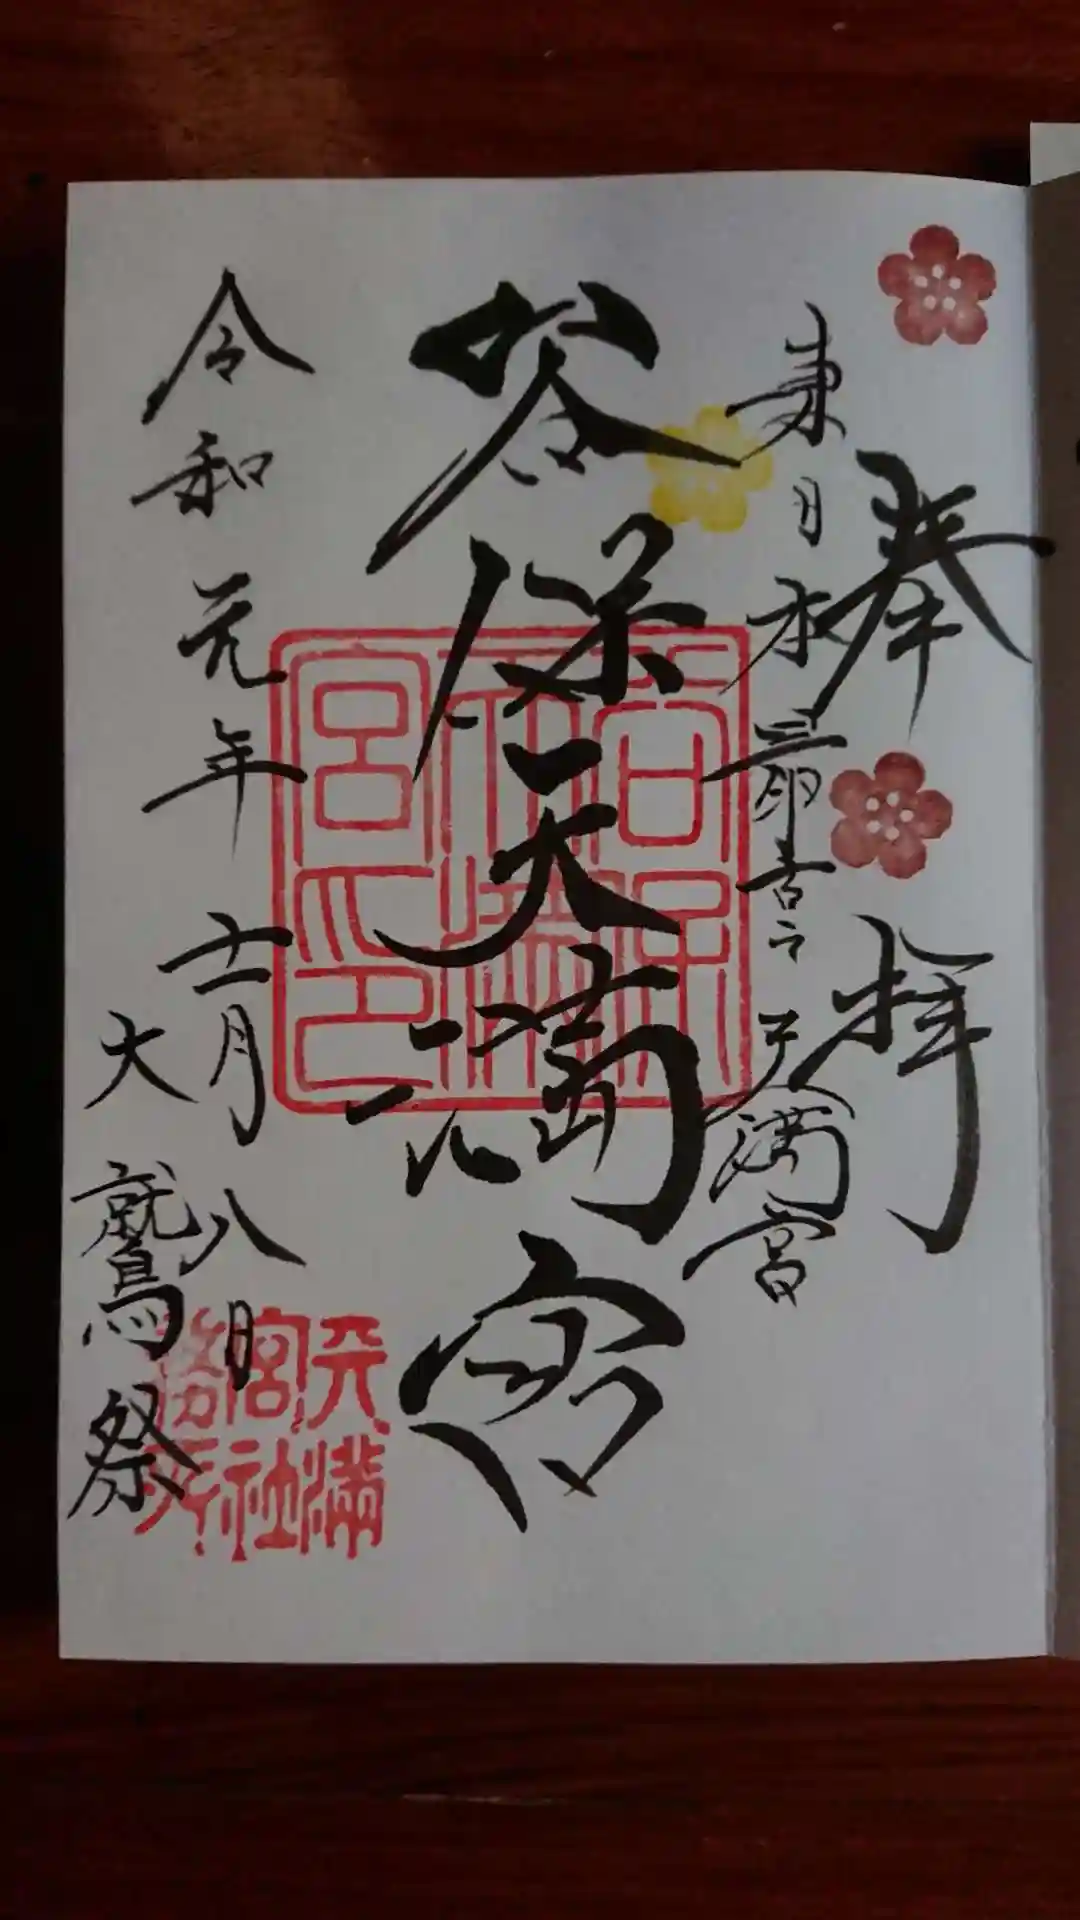 奉拝
東日本最古之天満宮
谷保天満宮
令和元年十一月八日
大鷲祭
谷保天満宮印
天満宮社務所